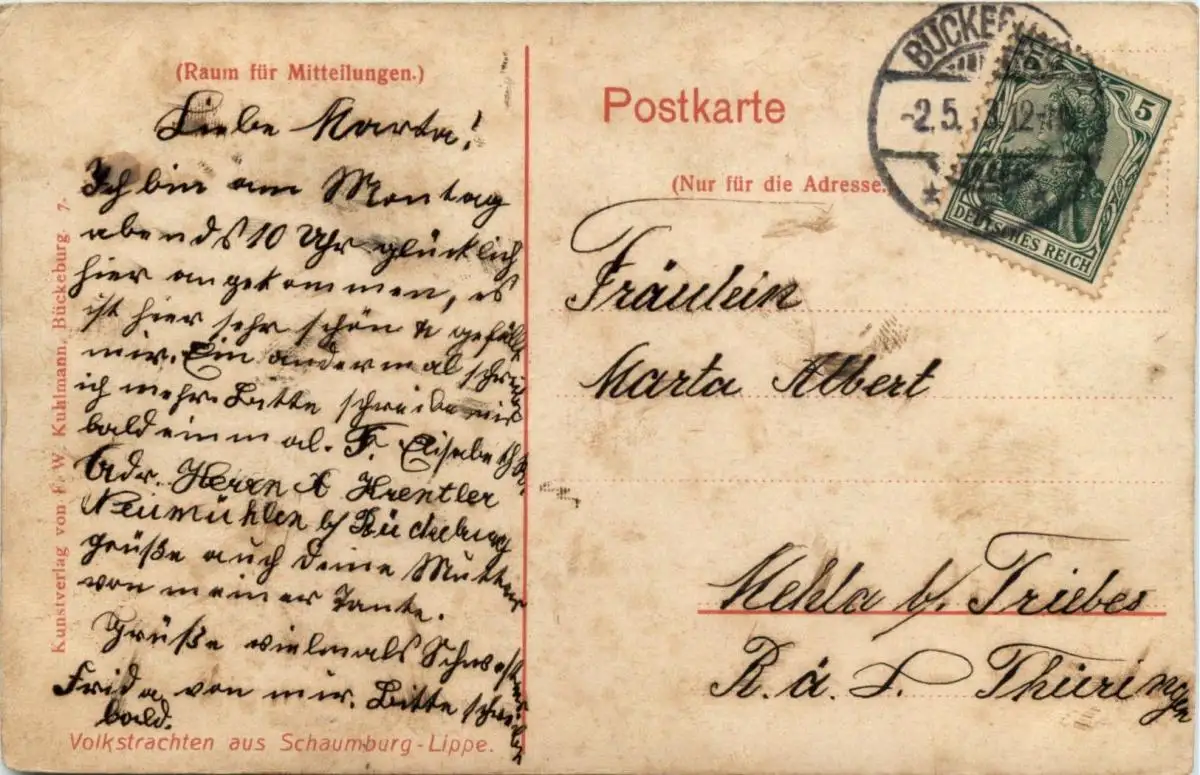 (Raum für Mitteilungen.)
Liebe Marta!
Ich bin am Montag
abends 10 Uhr glücklich
hier angekommen, es
ist hier sehr schön & gefällt
mir. Ein andermal schreibe
ich mehr. Bitte schreibe mir
bald einmal. F. Elisabeth
Adr. Herrn A Krentler
Neumühlen b/ Bückeburg
grüße auch deine Mutter
von meiner Tante.
Grüße vielmals Schwester
Frida von mir. Bitte schreibe
bald.
Volkstrachten aus Schaumburg-Lippe.
Kunstverlag von F. W. Kuhlmann, Bückeburg. 7.
Postkarte
(Nur für die Adresse.
BÜCKEB
-2.5. 12-
5
DEUTSCHES REICH
Fräulein
Marta Albert
Mehla b/ Triebes
R. ä. L. Thüringen